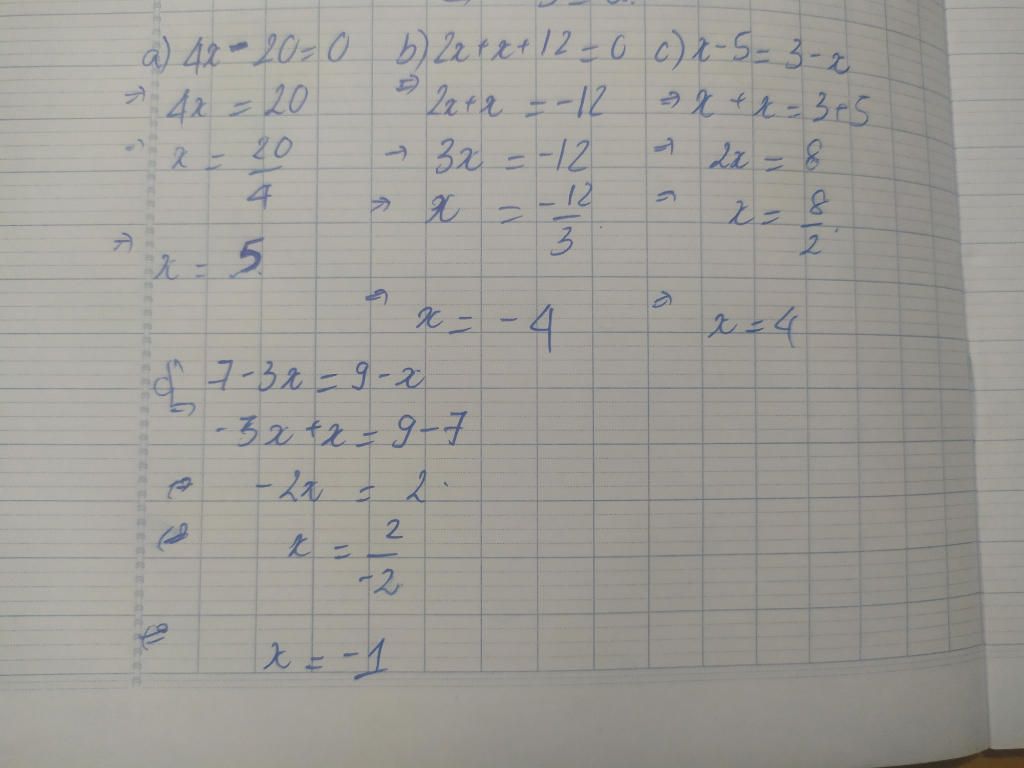 a) 4x - 20 = 0
⇒ 4x = 20
⇒ x = 20/4
⇒ x = 5
b) 2x + x + 12 = 0
⇒ 2x + x = -12
⇒ 3x = -12
⇒ x = -12/3
⇒ x = -4
c) x - 5 = 3 - x
⇒ x + x = 3 + 5
⇒ 2x = 8
⇒ x = 8/2
⇒ x = 4
d) 7 - 3x = 9 - x
⇒ -3x + x = 9 - 7
⇒ -2x = 2
⇔ x = 2/-2
⇔ x = -1